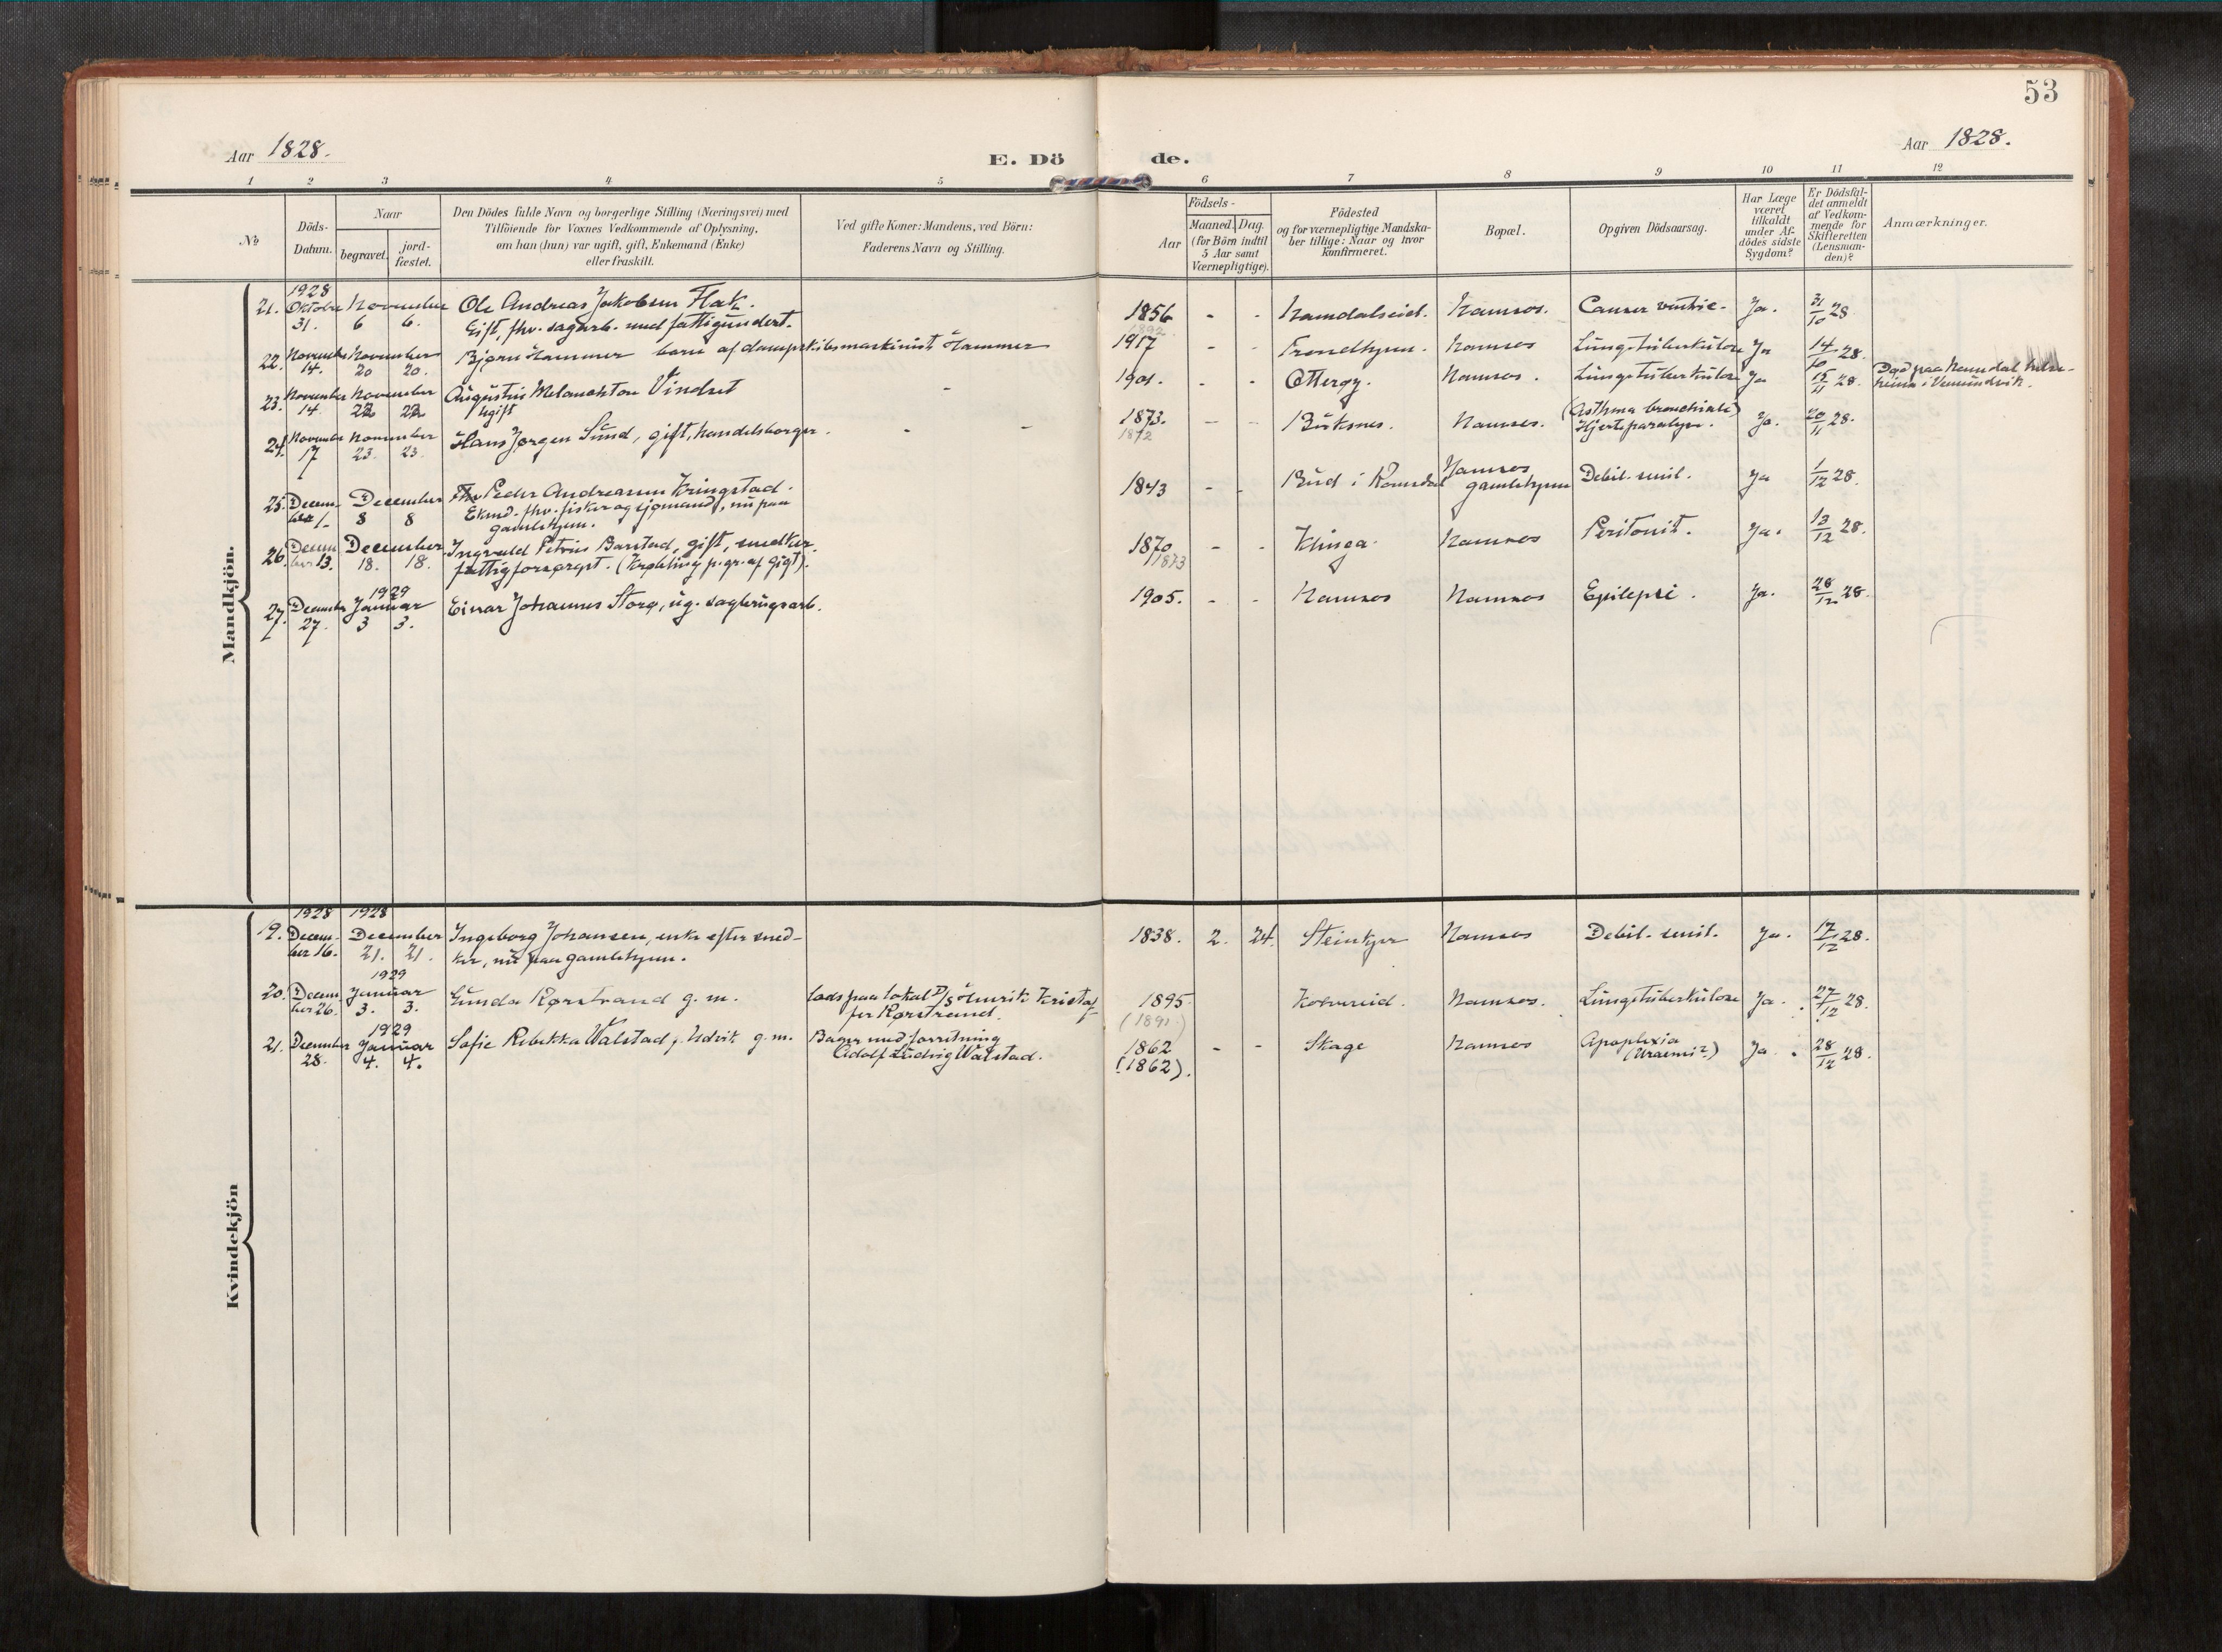 53
Aar 1828.
Aar 1828.
E. Dö
de.
1 2 3 4 5 6 7 8 9 10 11 12
No
Döds-
Datum.
Naar
begravet.
jord-
fæstet.
Den Dödes fulde Navn og borgerlige Stilling (Næringsvei) med
Tilföiende for Voxnes Vedkommende af Oplysning,
om han (hun) var ugift, gift, Enkemand (Enke)
eller fraskilt.
Ved gifte Koner: Mandens, ved Börn:
Faderens Navn og Stilling.
Födsels-
Aar
Maaned.
Dag.
(for Börn indtil
5 Aar samt
Værnepligtige).
Födested
og for værnepligtige Mandska-
ber tillige: Naar og hvor
konfirmeret.
Bopæl.
Opgiven Dödsaarsag.
Har Læge
været
tilkaldt
under Af-
dödes sidste
Sygdom?
Er Dödsfal-
det anmeldt
af Vedkom-
mende for
Skifteretten
(Lensman-
den)?
Anmærkninger.
Mandkjön.
1928
21. Oktober November Ole Andreas Jakobsen Flak. 1856 - - Namdalseid. Namsos. Cancer Ja. 31/10 28
31. 6 6. Gift, fhv. sagarb. med fattigundert.
1892
22. November November Bjørn Hammer barn af dampskibsmaskinist Hammer 1917 - - Trondhjem. Namsos Lungetuberkulose Ja 14/10 28.
14. 20 20.
23. November November Augustus Melanchton Vindset - 1901. - - Otterøy. Namsos. Lungetuberkulose Ja 15/11 28. Død paa Namdal helse-
14. 22 22 Ugift heim i Vemundvik.
24. November November Hans Jørgen Sund, gift, handelsborger. - - 1873. - - Birksnes. Namsos. (Asthma bronchiale) Ja. 20/11 28.
17 23. 23. 1872 Hjerteparalyse.
25. Decem- December Fhv Peder Andreassen Kringstad. 1843 - - Bud i Romsdal Namsos Debil. senil. Ja 1/12 28.
ber 1. 8 8 Ekmd. fhv. fisker og sjømand, nu paa gamlehjem
gamlehjem.
26. Decem- December Ingvald Petrus Barstad, gift, snedker. 1870 - - Klinga. Namsos Peritonit. Ja. 13/12 28.
ber 13. 18. 18. fattigforsørget. (Krøbling p. gr. af gigt). 1873
1929
27. December Januar Einar Johannes Storø, ug. sagbrugsarb. 1905. - - Namsos Namsos Epilepsi. Ja. 28/12 28.
27. 3 3.
Kvindekjön
1928 1928
19. Decem- December Ingeborg Johansen, enke efter sned- 1838. 2. 24. Steinkjer Namsos Debil. senil. Ja. 17/12 28.
ber 16. 21. 21. ker, nu paa gamlehjem.
1929
20. Decem- Januar Gunda Rørstrand g. m. lods paa lokal D/S Hmrik Kristof- 1895 Kolvereid. Namsos. Lungetuberkulose Ja. 27/12 28.
ber 26. 3. 3. fer Rørstrand. (1891)
1929
21. December Januar Sofie Rebekka Walstad, f. Udvik g. m. Bager med forretning 1862 - - Skage Namsos Apoplexia Ja. 28/12 28.
28. 4. 4. Adolf Ludvig Walstad. (1862). (Uraemi?)